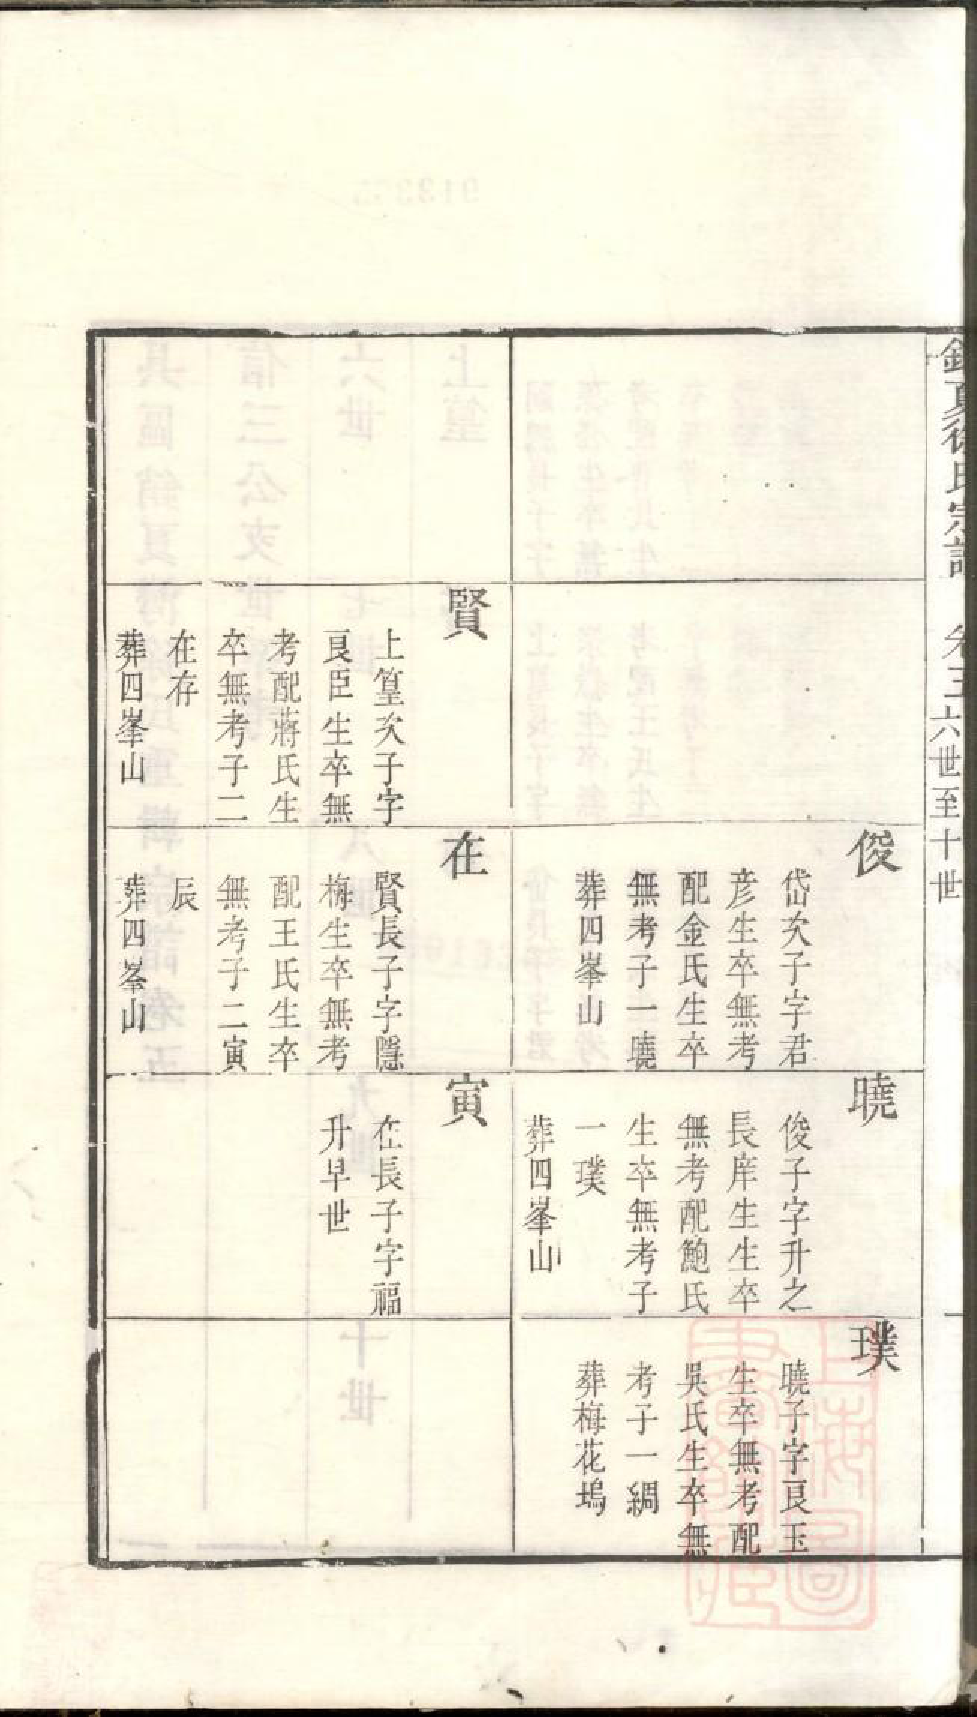 銷夏徐氏宗譜 卷五 六世至十世
俊
岱次子字君
彦生卒無考
配金氏生卒
無考子一曉
葬四峯山
曉
俊子字升之
長庠生生卒
無考配鮑氏
生卒無考子
一璞
葬四峯山
璞
曉子字良玉
生卒無考配
吳氏生卒無
考子一綢
葬梅花塢
賢
上篁次子字
良臣生卒無
考配蔣氏生
卒無考子二
在存
葬四峯山
在
賢長子字隱
梅生卒無考
配王氏生卒
無考子二寅
辰
葬四峯山
寅
在長子字福
升早世
上海圖書館藏